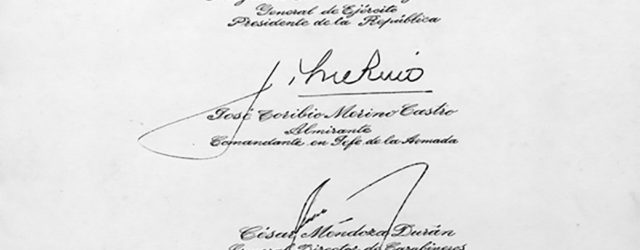 General de Ejército
Presidente de la República
J. T. Merino
José Toribio Merino Castro
Almirante
Comandante en Jefe de la Armada
César Mendoza Durán
General Director de Carabineros